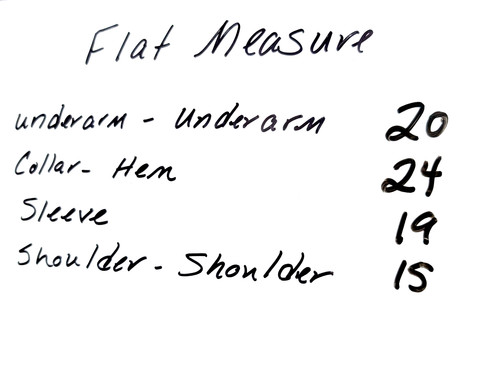 Flat Measure
underarm - Underarm 20
Collar - Hem 24
Sleeve 19
Shoulder - Shoulder 15